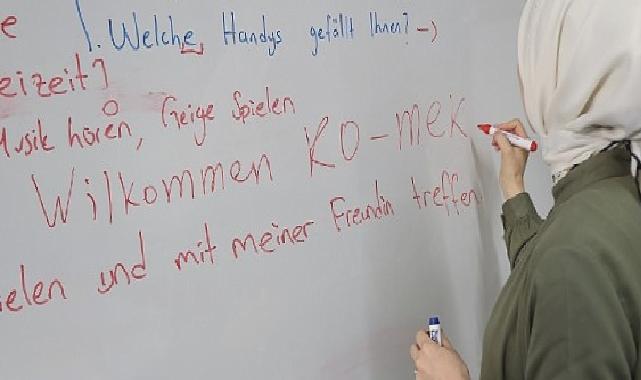 e
1. Welche Handys gefällt Ihnen? →
eizeit]
Musik hören, Geige Spielen
Wilkommen KO-meK
ielen und mit meiner Freundin treffen